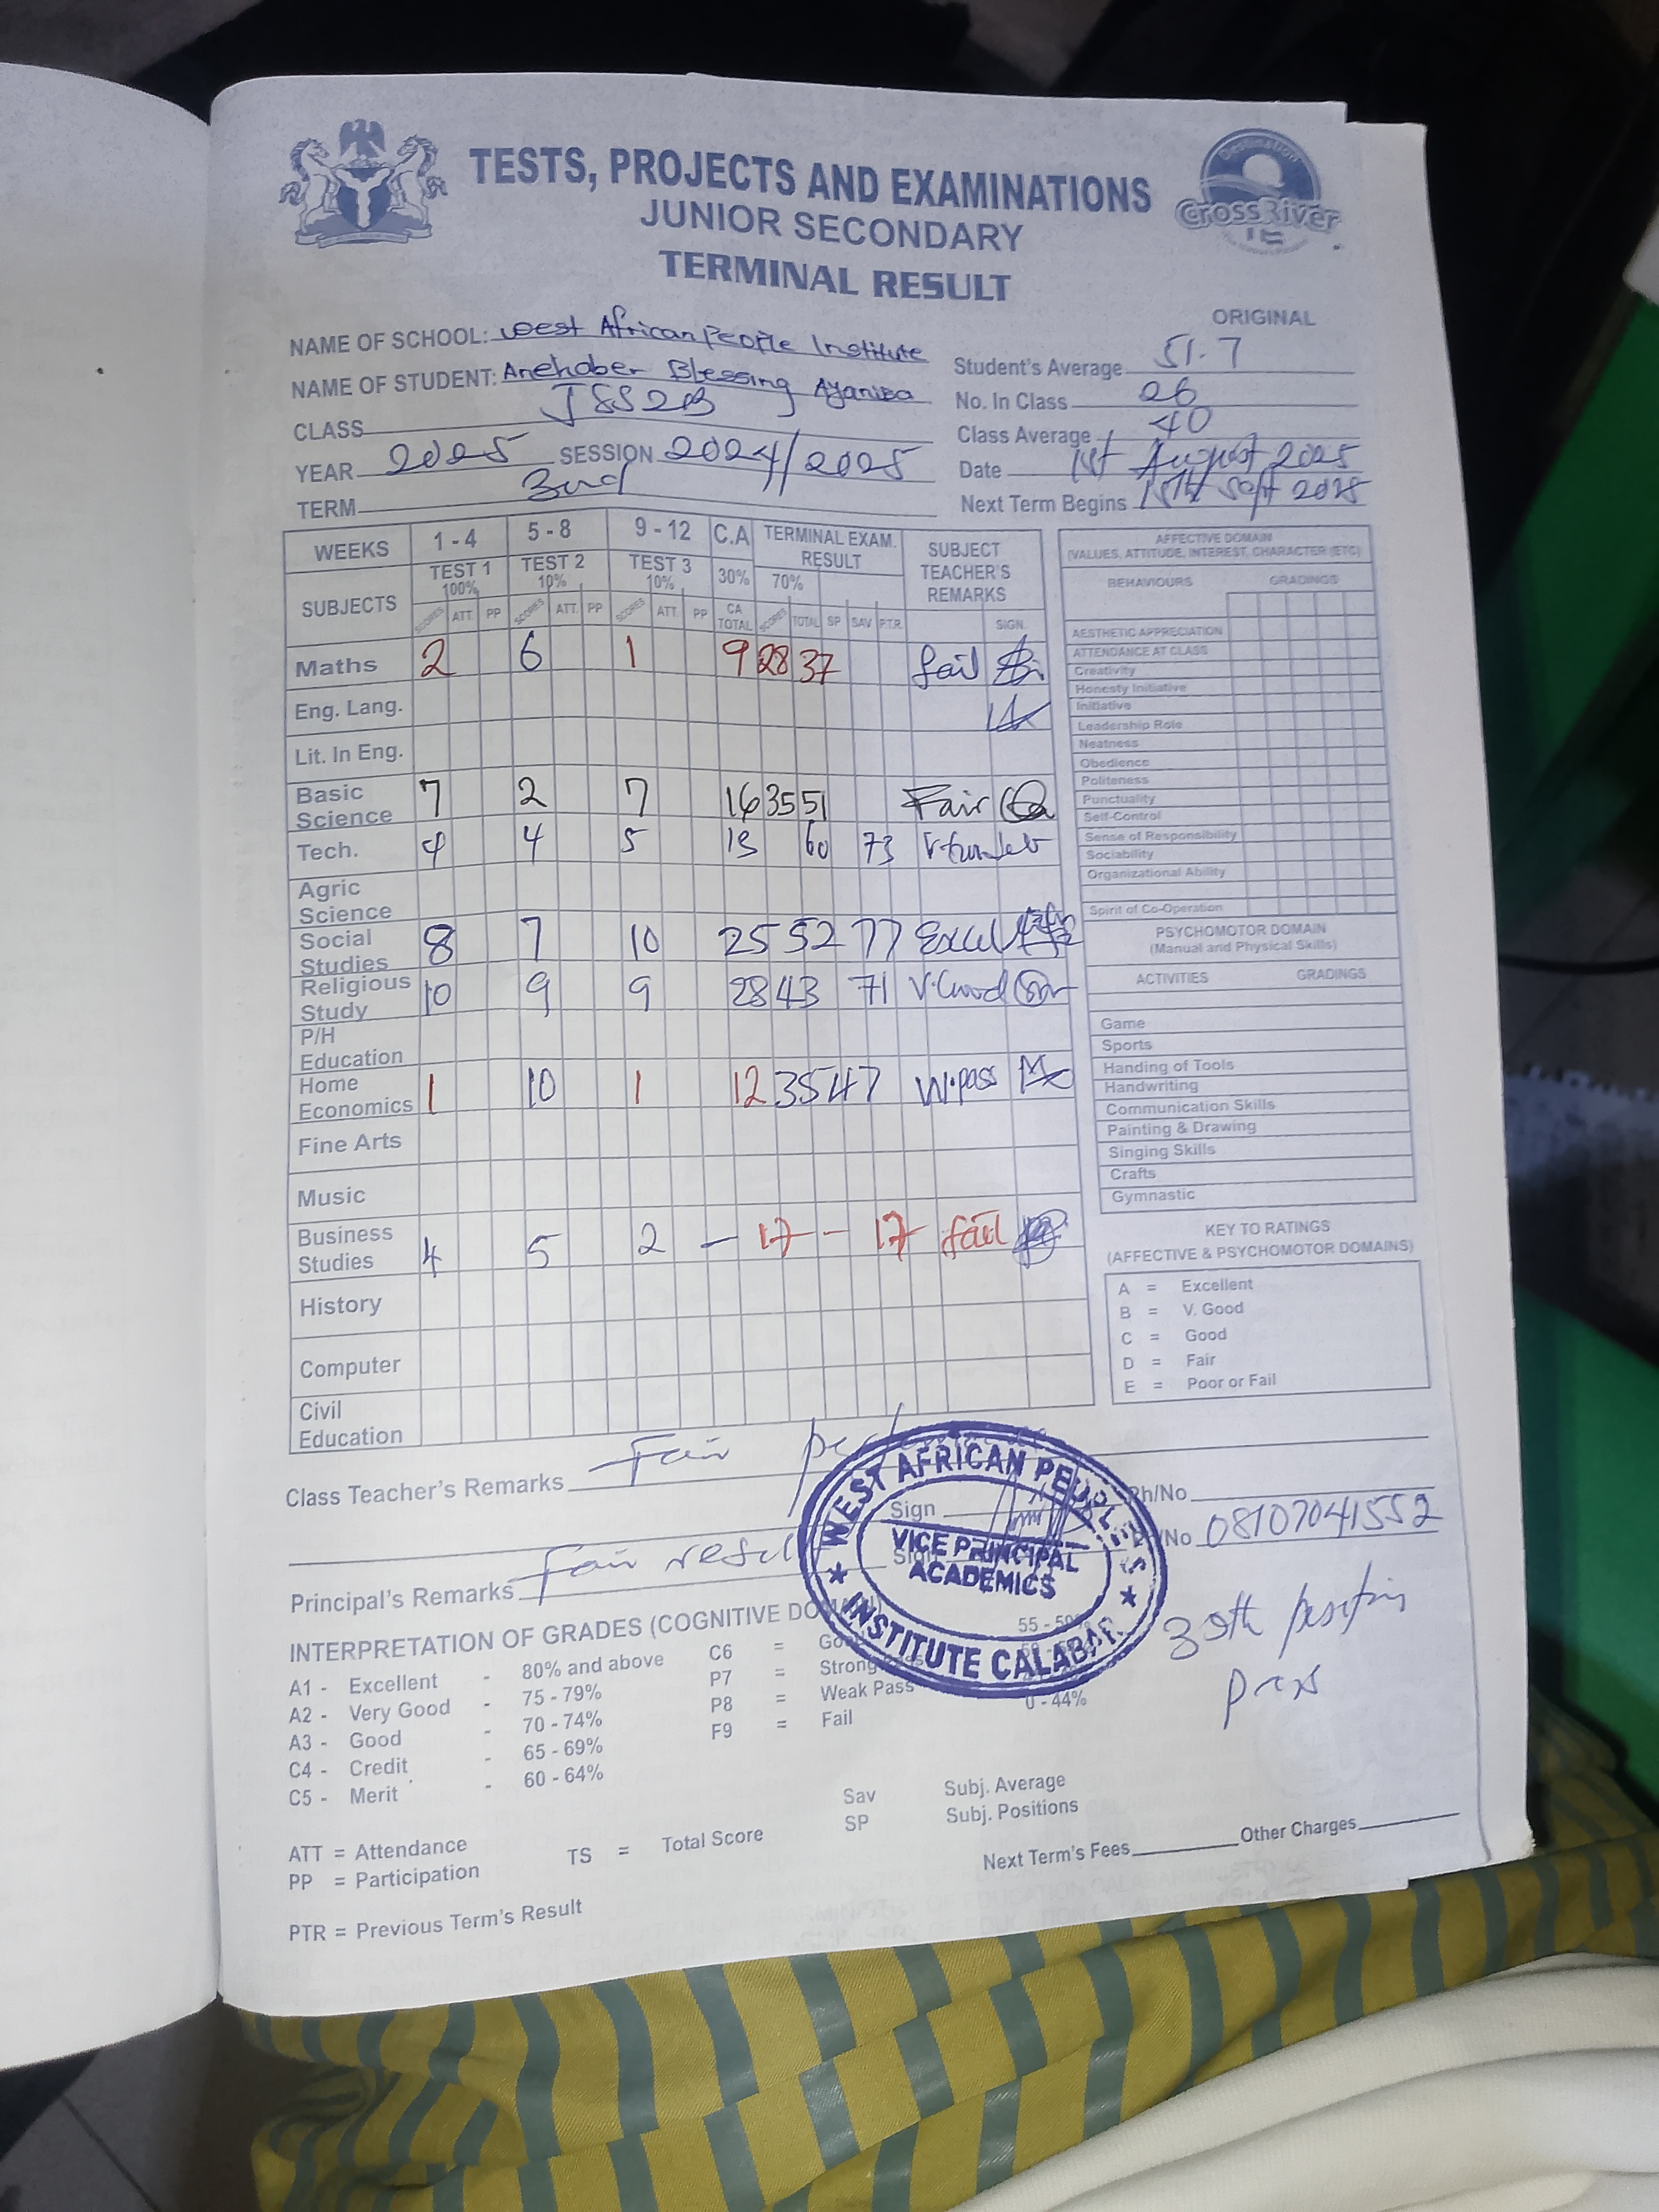 TESTS, PROJECTS AND EXAMINATIONS
JUNIOR SECONDARY
TERMINAL RESULT
Destination
CrossRiver
ORIGINAL
NAME OF SCHOOL: West African People Institute
NAME OF STUDENT: Blessing
CLASS JSS2B
YEAR 2025 SESSION 2024/2025
TERM 3rd
Student's Average 51.7
No. In Class 26
Class Average 40
Date 1st August 2025
Next Term Begins 15th Sept 2025
WEEKS 1 - 4 5 - 8 9 - 12 C.A TERMINAL EXAM. RESULT SUBJECT TEACHER'S REMARKS
SUBJECTS TEST 1 100% TEST 2 10% TEST 3 10% 30% 70%
SCORES ATT. PP SCORES ATT. PP SCORES ATT. PP CA TOTAL SCORES TOTAL SP SAV P.T.R. SIGN.
Maths 2 6 1 9 28 37 fail
Eng. Lang.
Lit. In Eng.
Basic Science 7 2 7 16 35 51 Fair
Tech. 4 4 5 13 60 73
Agric Science
Social Studies 8 7 10 25 52 77 Excel
Religious Study 10 9 9 28 43 71 V.Good
P/H Education
Home Economics 1 10 1 12 35 47 W.pass
Fine Arts
Music
Business Studies 4 5 2 — 17 — 17 fail
History
Computer
Civil Education
AFFECTIVE DOMAIN
(VALUES, ATTITUDE, INTEREST, CHARACTER (ETC)
BEHAVIOURS GRADINGS
AESTHETIC APPRECIATION
ATTENDANCE AT CLASS
Creativity
Honesty Initiative
Initiative
Leadership Role
Neatness
Obedience
Politeness
Punctuality
Self-Control
Sense of Responsibility
Sociability
Organizational Ability
Spirit of Co-Operation
PSYCHOMOTOR DOMAIN
(Manual and Physical Skills)
ACTIVITIES GRADINGS
Game
Sports
Handing of Tools
Handwriting
Communication Skills
Painting & Drawing
Singing Skills
Crafts
Gymnastic
KEY TO RATINGS
(AFFECTIVE & PSYCHOMOTOR DOMAINS)
A = Excellent
B = V. Good
C = Good
D = Fair
E = Poor or Fail
Class Teacher's Remarks Fair
Sign Ph/No
Principal's Remarks Fair result
Sign Ph/No 08107041552
WEST AFRICAN PEOPLE'S
VICE PRINCIPAL
ACADEMICS
INSTITUTE CALABAR
position
INTERPRETATION OF GRADES (COGNITIVE DOMAIN)
A1 - Excellent - 80% and above
A2 - Very Good - 75 - 79%
A3 - Good - 70 - 74%
C4 - Credit - 65 - 69%
C5 - Merit - 60 - 64%
C6 = Good 55 - 59%
P7 = Strong Pass
P8 = Weak Pass
F9 = Fail 0 - 44%
Sav Subj. Average
SP Subj. Positions
ATT = Attendance
PP = Participation
TS = Total Score
PTR = Previous Term's Result
Next Term's Fees Other Charges